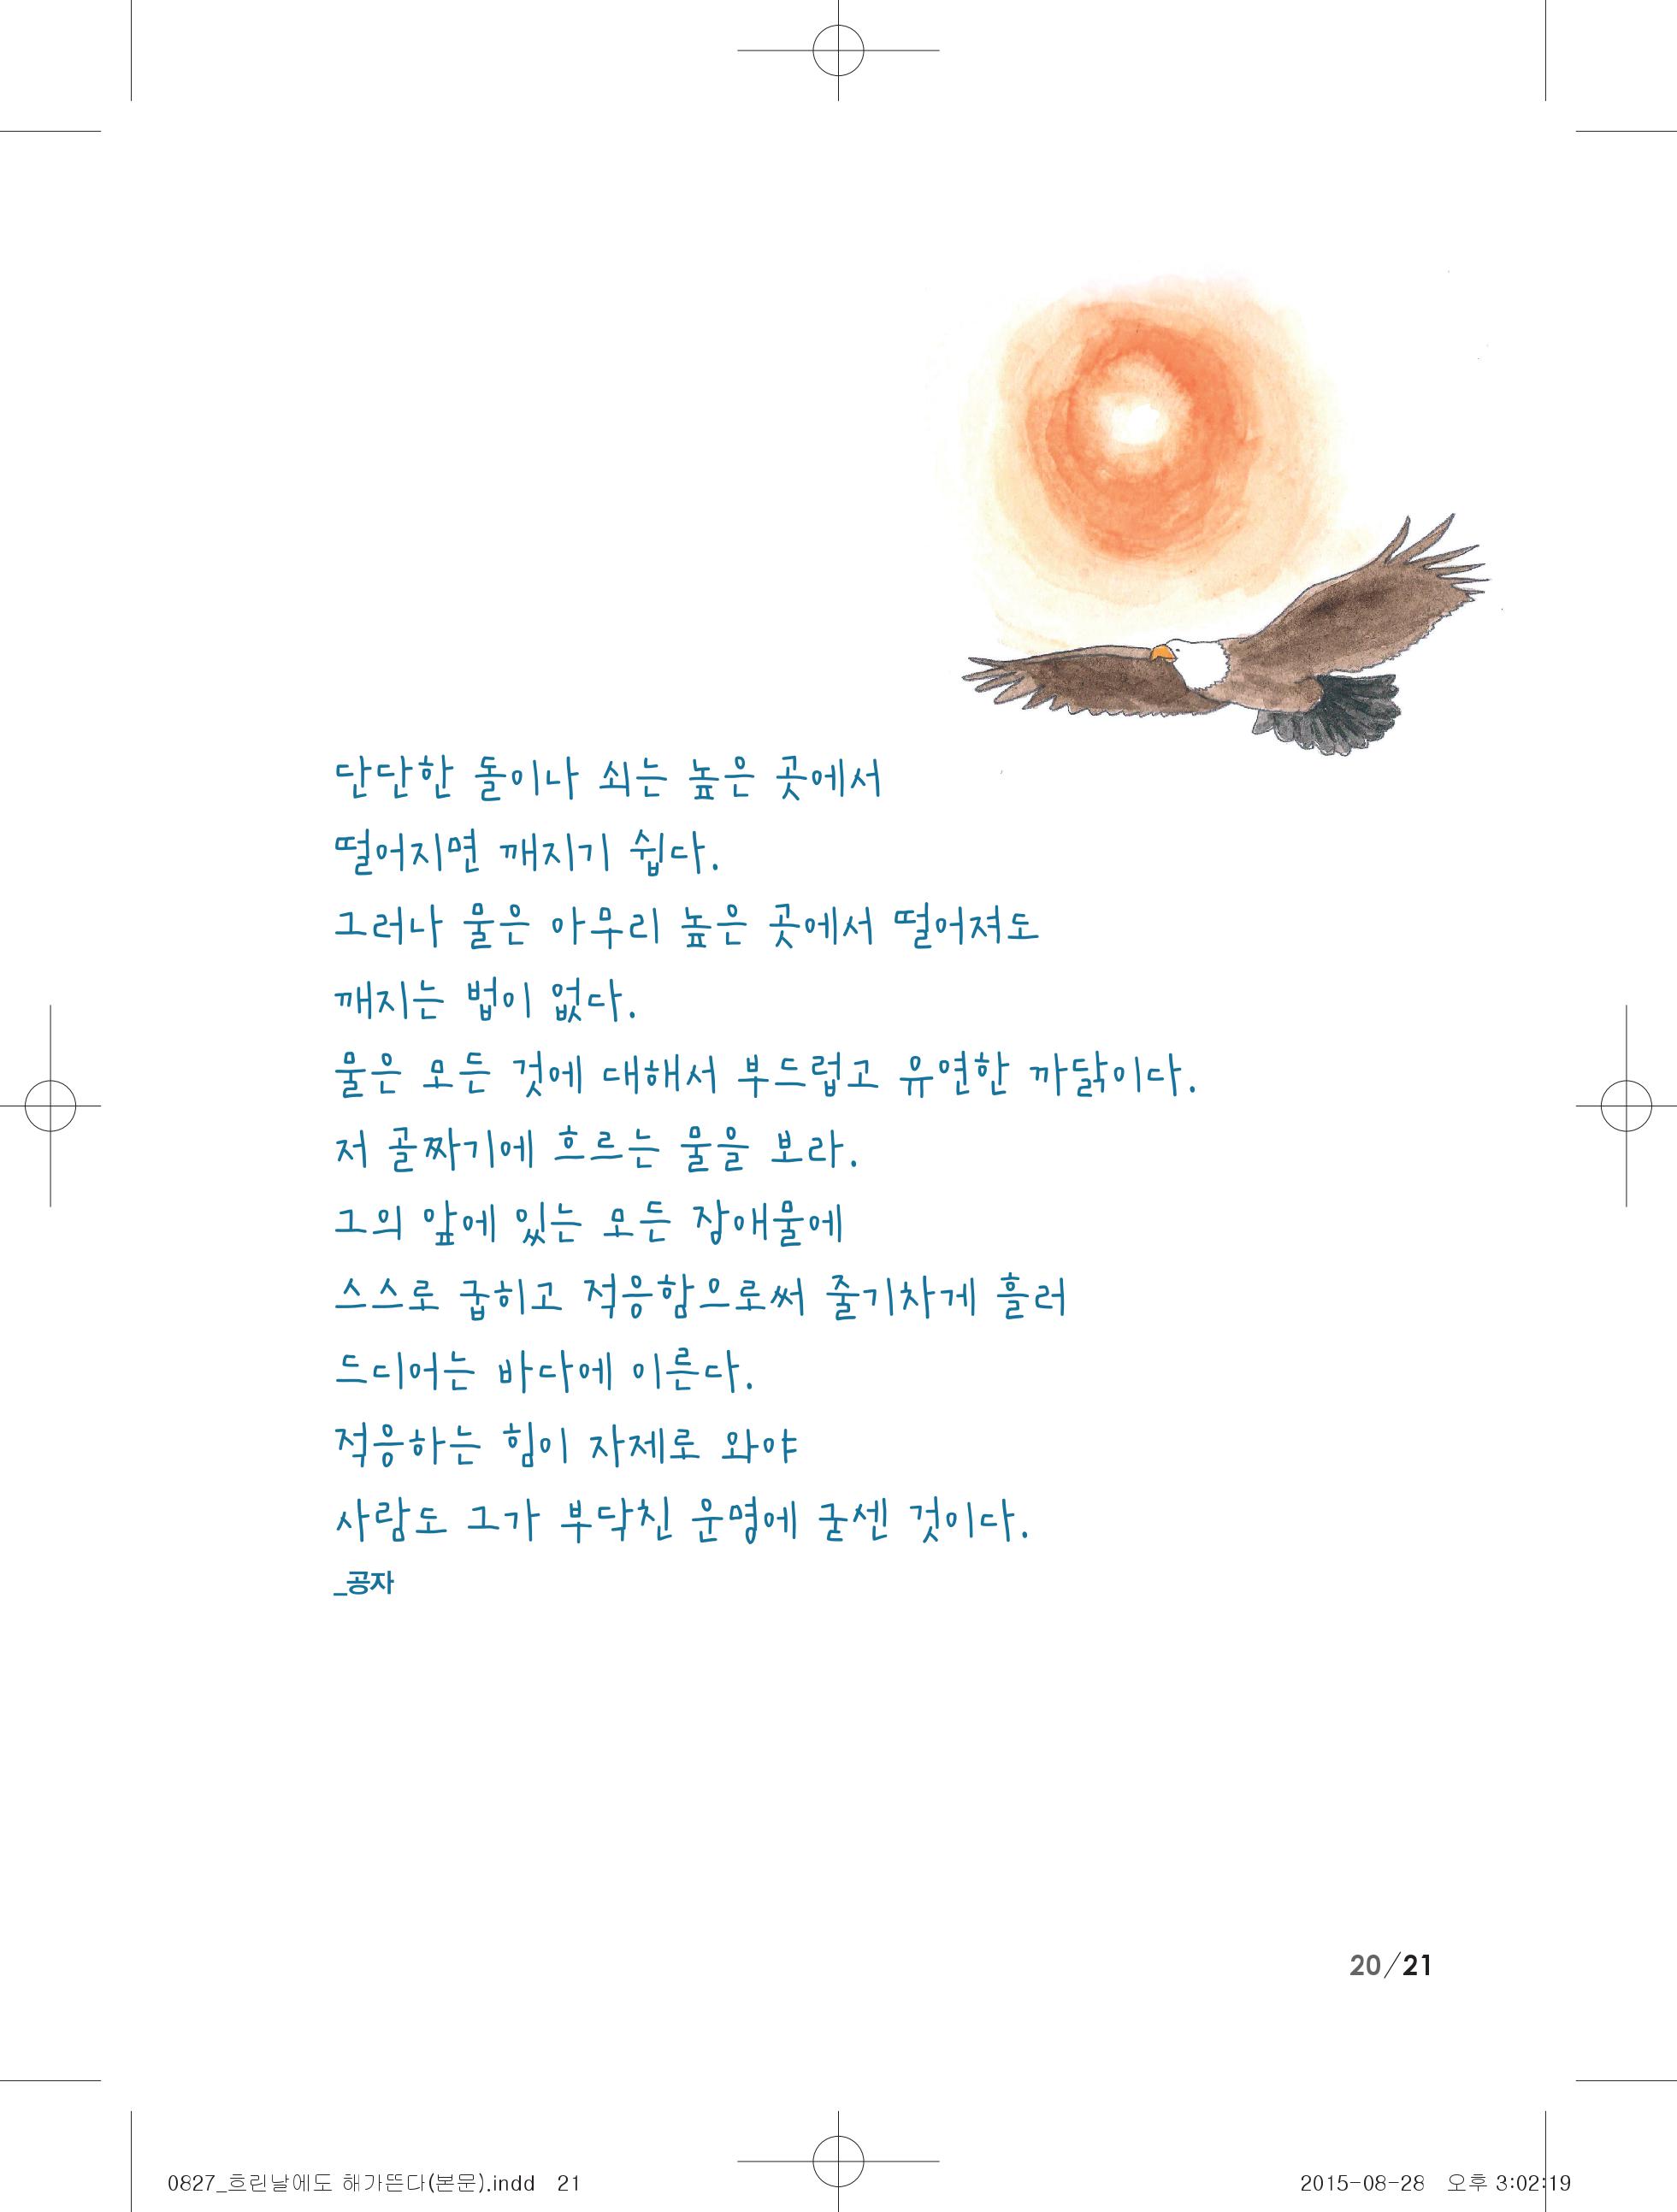 단단한 돌이나 쇠는 높은 곳에서
떨어지면 깨지기 쉽다.
그러나 물은 아무리 높은 곳에서 떨어져도
깨지는 법이 없다.
물은 모든 것에 대해서 부드럽고 유연한 까닭이다.
저 골짜기에 흐르는 물을 보라.
그의 앞에 있는 모든 장애물에
스스로 굽히고 적응함으로써 줄기차게 흘러
드디어는 바다에 이른다.
적응하는 힘이 자제로 와야
사람도 그가 부닥친 운명에 굳센 것이다.
_공자
20/21
0827_흐린날에도 해가뜬다(본문).indd 21
2015-08-28 오후 3:02:19